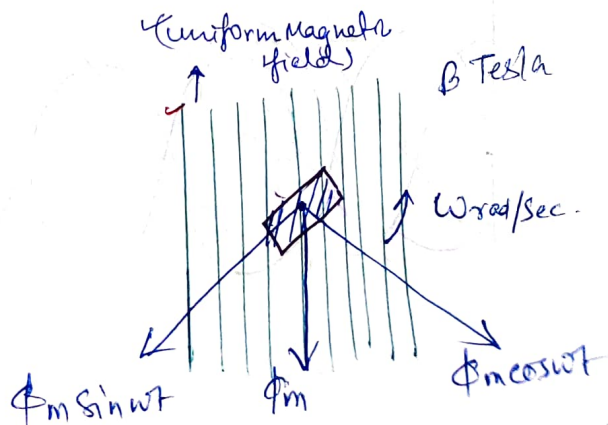 (uniform Magnetic
field)
B Tesla
W rad/sec.
ϕm Sinwt
ϕm
ϕm coswt